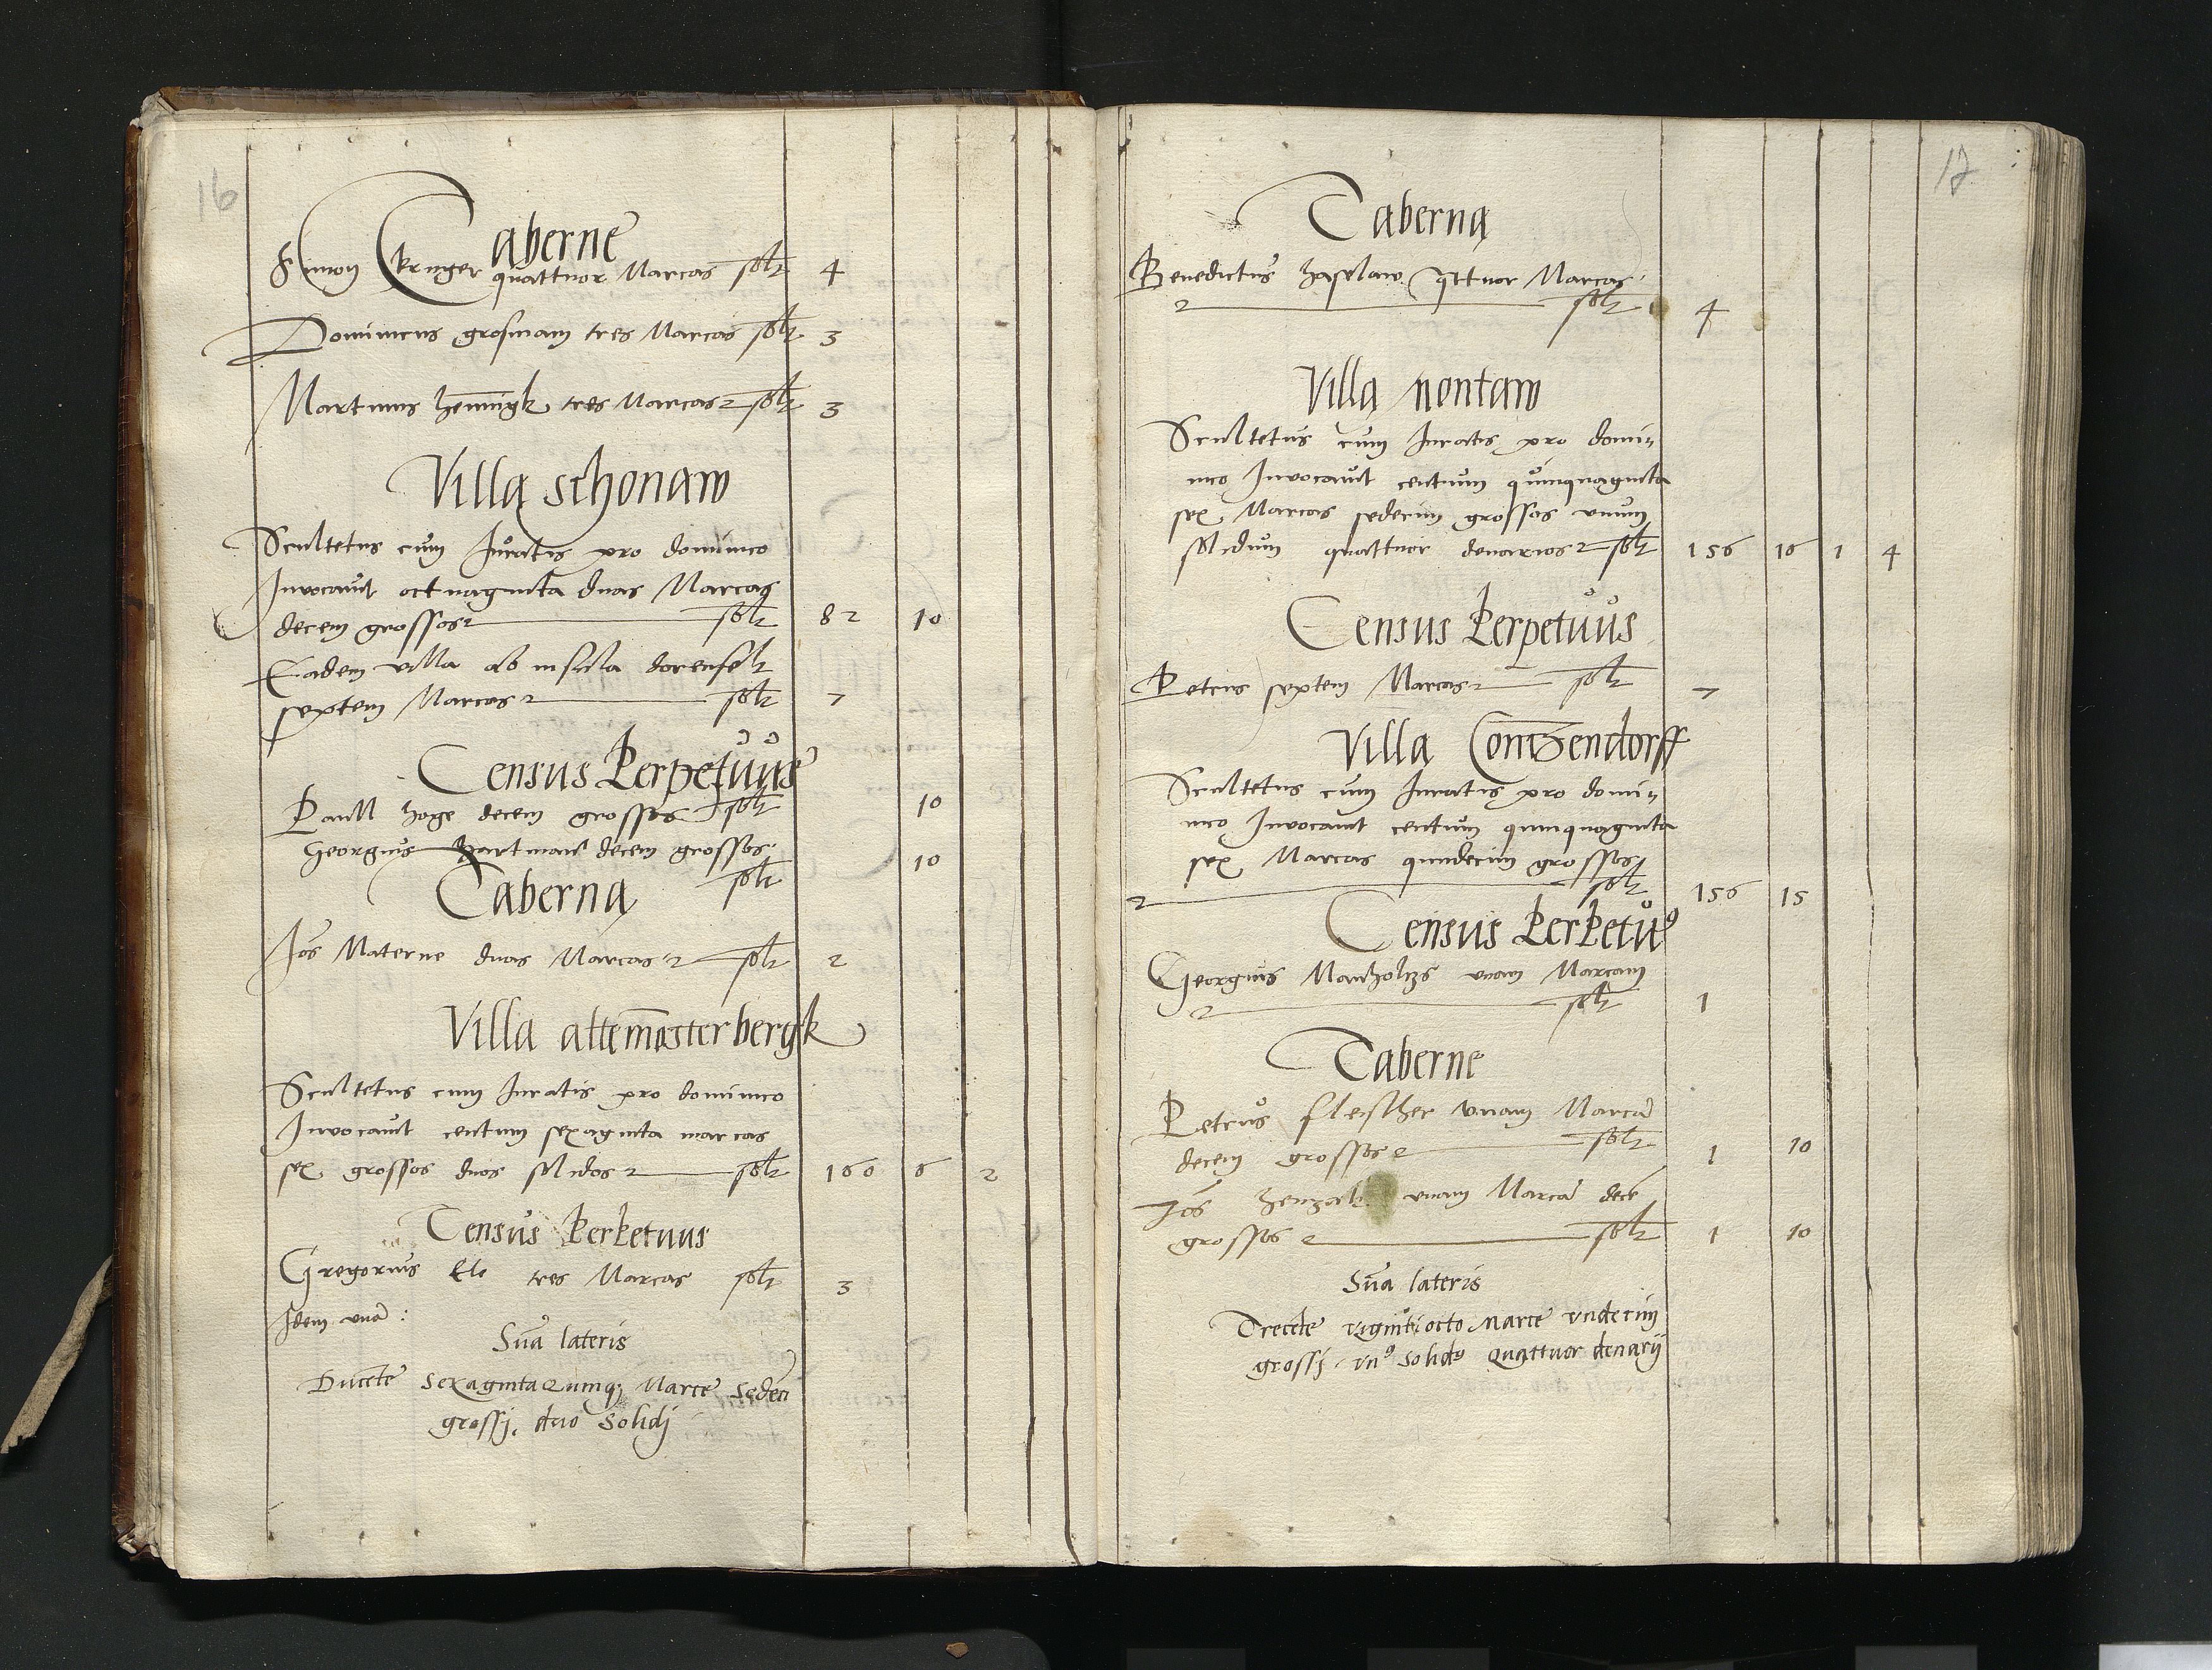 16
Taberne
Simon Kruger quattuor Marcas solt 4
Dominicus grosmam tres Marcas solt 3
Martinus henni̅gk tres Marcas solt 3
Villa schonaw
Scultetus cum Juratis pro dominico
Invocavit octuaginta duas Marcas
decem grossos solt 82 10
Eadem villa ab insula
septem Marcas solt 7
Census Perpetuus
Paull hoge decem grossos solt 10
Georgius Hartman decem grossos 10
solt
Taberna
Jo̅s Materne duas Marcas solt 2
Villa altemo̅sterbergk
Scultetus cum Juratis pro dominico
Invocavit centum sexaginta marcas
sex grossos duos solidos solt 160 6 2
Census Perpetuus
Gregorius Ele tres Marcas solt 3
Idem una̅ :
Su̅a lateris
Duce̅te sexagintaQuinq; Marce sedeci̅
grossi, duo solidj
17
Taberna
Benedictus haselaw qttuor Marcas
solt 4
Villa nontaw
Scultetus cum Juratis pro domi„
nico Invocavit centum quinquaginta
sex Marcas sedecim grossos unum
solidum quattuor denarios solt 156 16 1 4
Census Perpetuus
Petrus septem Marcas solt 7
Villa Contzendorff
Scultetus cum Juratis pro domi„
nico Invocavit centum quinquaginta
sex Marcas quindecim grossos
solt 156 15
Census Perpetu9
Georgius Manholtzs unam Marcam
solt 1
Taberne
Petrus fleischer unam Marca̅
decem grossos solt 1 10
Jo̅s unam Marca̅ dece̅
grossos solt 1 10
Su̅a lateris
Trece̅te vigintiocto Marce undecim
grossi un9 solid9 Quattuor denarij